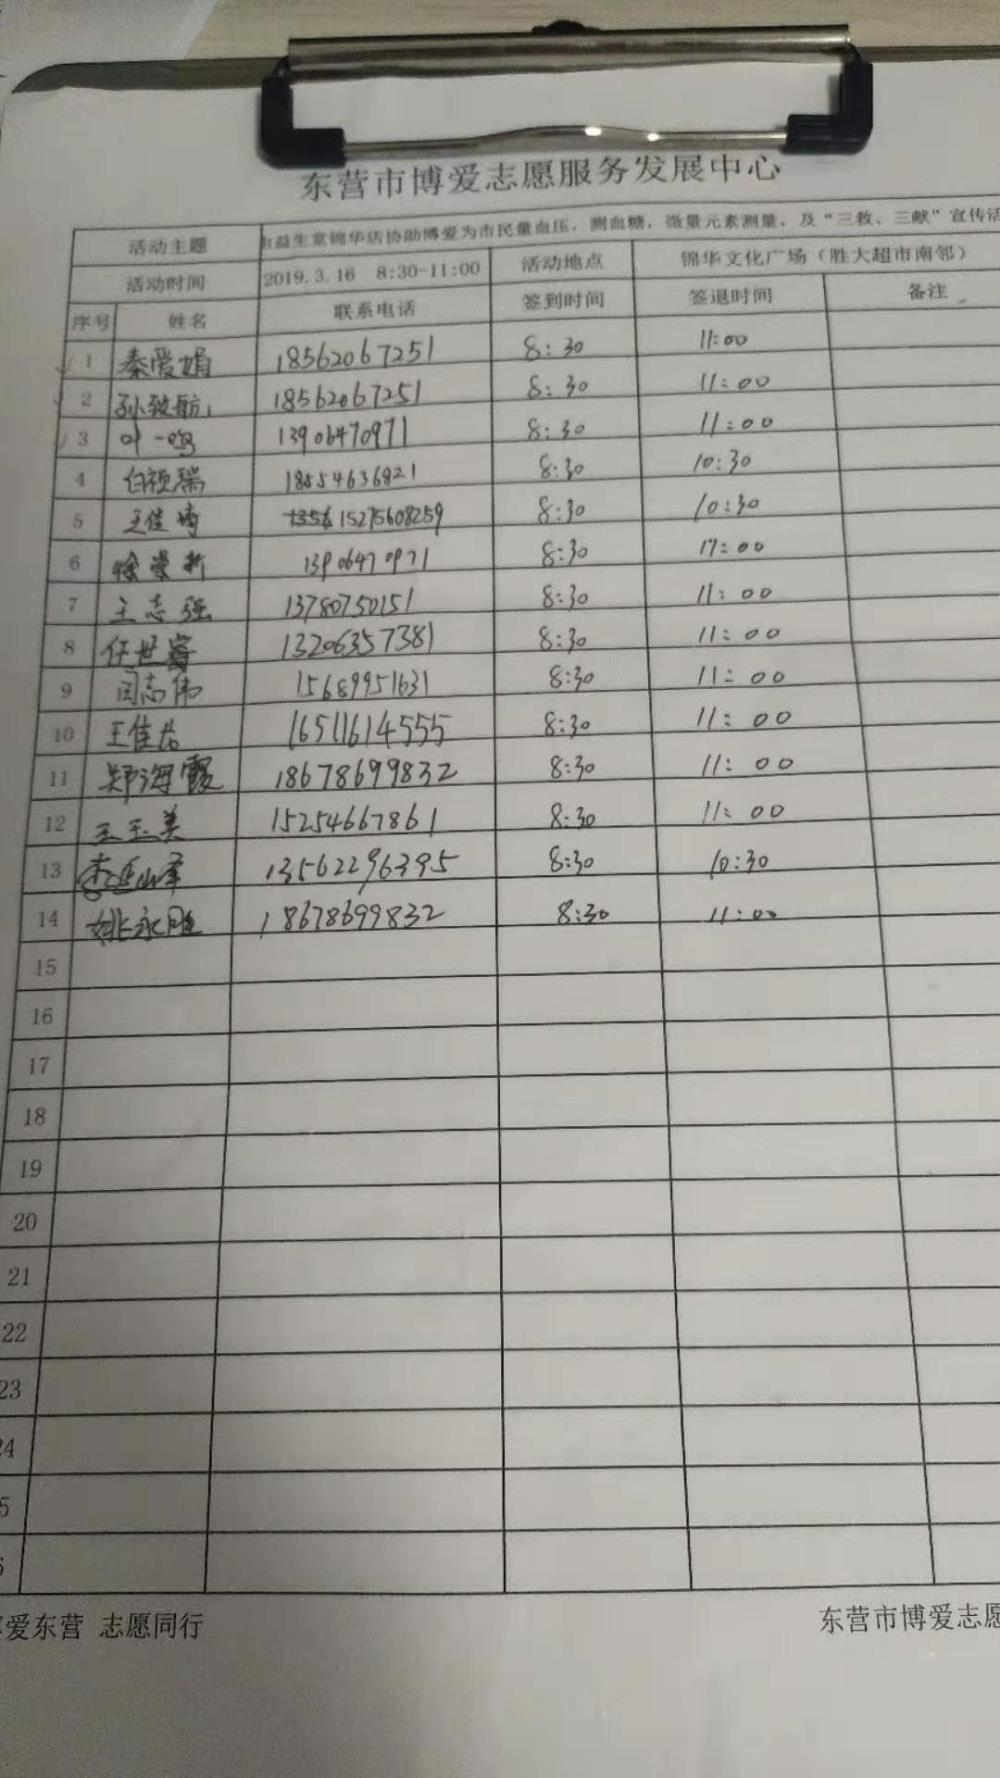 东营市博爱志愿服务发展中心
活动主题 由益生堂锦华店协助博爱为市民量血压，测血糖，微量元素测量，及“三救、三献”宣传活
活动时间 2019.3.16 8:30-11:00 活动地点 锦华文化广场（胜大超市南邻）
序号 姓名 联系电话 签到时间 签退时间 备注
1 秦爱娟 18562067251 8:30 11:00
2 孙致航 18562067251 8:30 11:00
3 叶一鸣 13906470971 8:30 11:00
4 白祖瑞 18554636821 8:30 10:30
5 王佳琦 15275608259 8:30 10:30
6 徐崇新 13906470971 8:30 17:00
7 王志强 13780750151 8:30 11:00
8 任世睿 13206357381 8:30 11:00
9 闫志伟 15689951631 8:30 11:00
10 王佳茗 16511614555 8:30 11:00
11 郑海霞 18678699832 8:30 11:00
12 王玉美 15254667861 8:30 11:00
13 13562296395 8:30 10:30
14 姚永胜 18678699832 8:30 11:00
15
16
17
18
19
20
21
22
23
24
5
6
爱东营 志愿同行 东营市博爱志愿